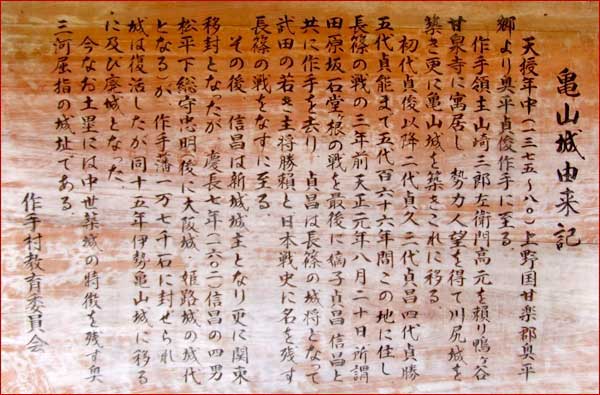 亀山城由来記
天授年中(一三七五〜八〇)上野国甘楽郡奥平
郷より奥平貞俊作手に至る。
作手領主山崎三郎左衛門高元を頼り鴨ヶ谷
甘泉寺に寓居し、勢力人望を得て川尻城を
築き更に亀山城を築きこれに移る。
初代貞俊以降二代貞久三代貞昌四代貞勝
五代貞能まで五代百六十六年間この地に住し
長篠の戦の三年前天正元年八月二十日所謂
田原坂石堂ヶ根の戦を最後に嫡子貞昌信昌と
共に作手を去り、貞昌は長篠の城将となって
武田の若き主将勝頼と日本戦史に名を残す
長篠の戦をなすに至る。
その後、信昌は新城城主となり更に関東
移封となたが、慶長七年(一六〇二)信昌の四男
松平下総守忠明(後に大阪城、姫路城の城代
となる)が、作手藩一万七千石に封ぜられ
城は復活したが同十五年伊勢亀山城に移る
に及び廃城となった。
今なお土塁には中世築城の特徴を残す奥
三河屈指の城址である。
作手村教育委員会